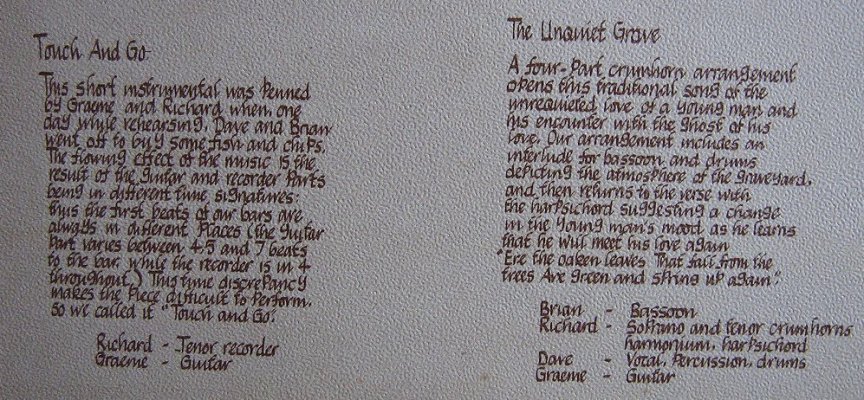 Touch And Go
This short instrumental was penned
by Graeme and Richard when, one
day while rehearsing, Dave and Brian
went off to buy some fish and chips.
The flowing effect of the music is the
result of the guitar and recorder parts
being in different time signatures:
thus the first beats of our bars are
always in different places (the guitar
part varies between 4,5 and 7 beats
to the bar, while the recorder is in 4
throughout.) This time discrepancy
makes the piece difficult to perform,
so we called it "Touch and Go".
Richard - Tenor recorder
Graeme - Guitar
The Unquiet Grave
A four-part crumhorn arrangement
opens this traditional song of the
unrequieted love of a young man and
his encounter with the ghost of his
love. Our arrangement includes an
interlude for bassoon and drums
depicting the atmosphere of the graveyard,
and then returns to the verse with
the harpsichord suggesting a change
in the young man's mood as he learns
that he will meet his love again
"Ere the oaken leaves That fall from the
trees Are green and spring up again".
Brian - Bassoon
Richard - Soprano and tenor crumhorns
harmonium, harpsichord
Dave - Vocal, percussion, drums
Graeme - Guitar